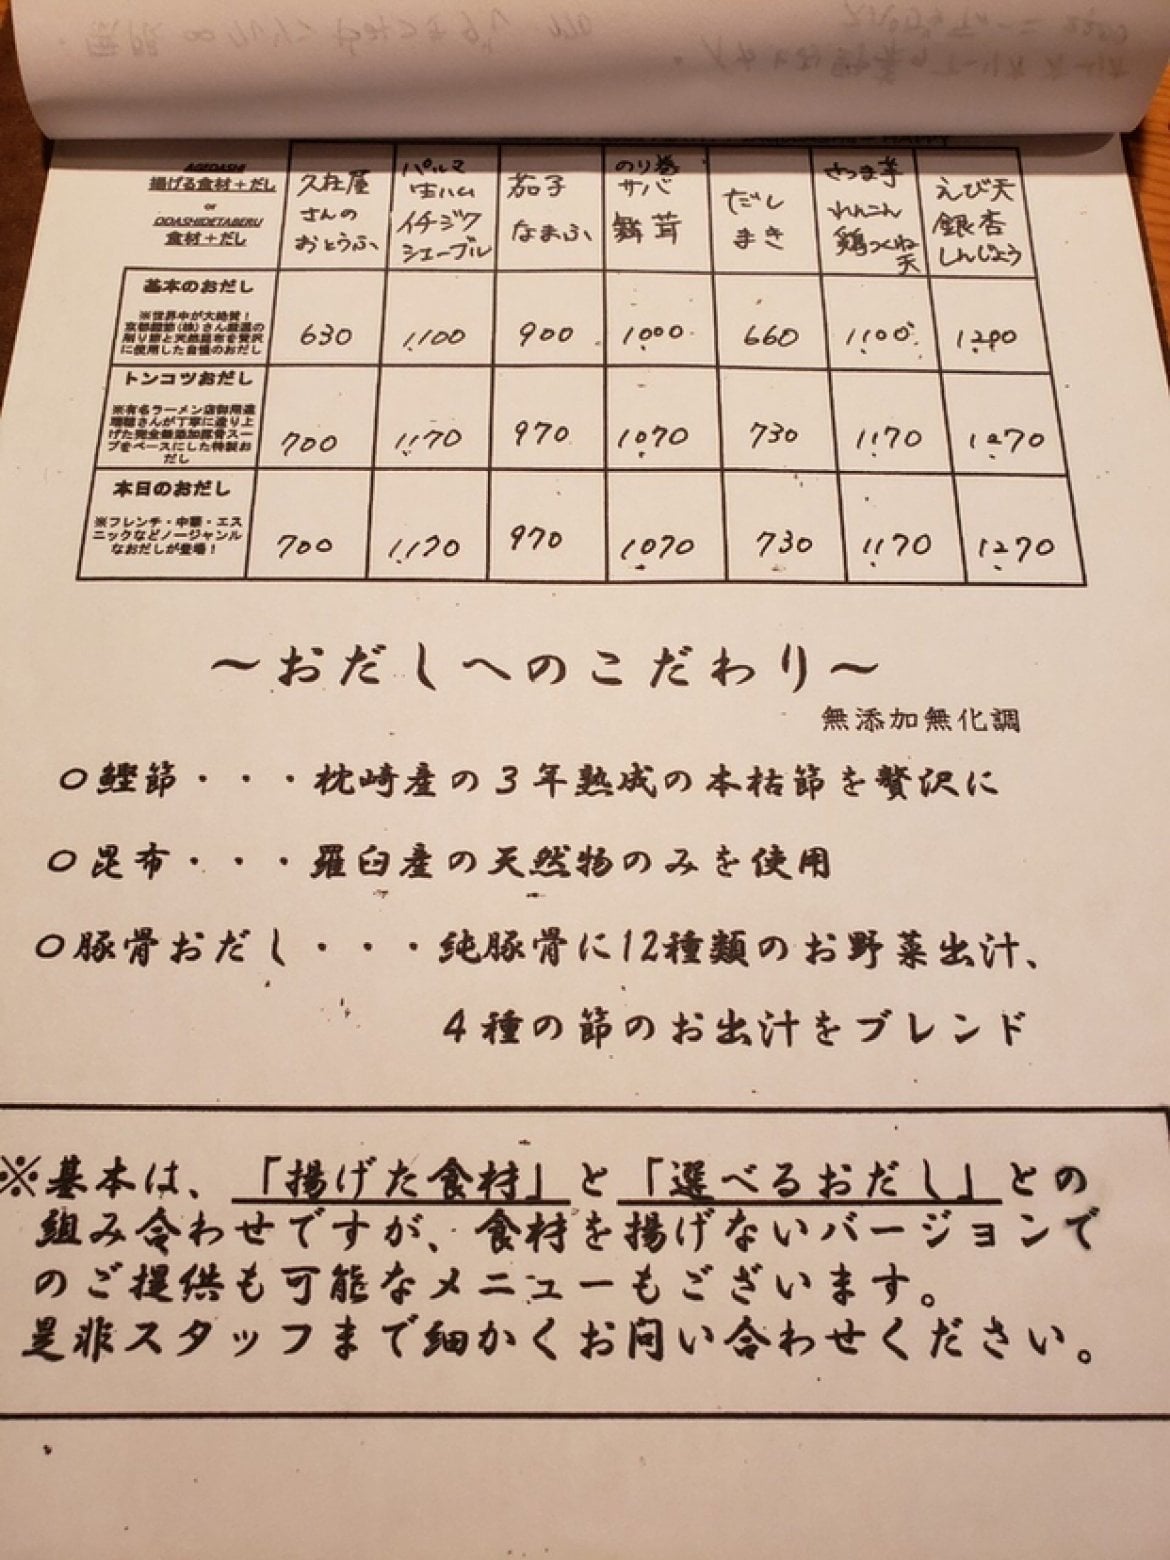 AGEDASHI
揚げる食材＋だし
or
ODASHIDETABERU
食材＋だし
久在屋
さんの
おとうふ
パルマ
生ハム
イチジク
シェーブル
茄子
なまふ
のり巻
サバ
舞茸
だし
まき
さつま芋
れんこん
鶏つくね
天
えび天
銀杏
しんじょう
基本のおだし
※世界中が大絶賛！
京都鰹節(株)さん厳選の
削り節と天然昆布を贅沢
に使用した自慢のおだし
630 1,100 900 1,000 660 1,100 1,200
トンコツおだし
※有名ラーメン店御用達
さんが丁寧に造り上
げた完全無添加豚骨スー
プをベースにした特製お
だし
700 1,170 970 1,070 730 1,170 1,270
本日のおだし
※フレンチ・中華・エス
ニックなどノージャンル
なおだしが登場！
700 1,170 970 1,070 730 1,170 1,270
～おだしへのこだわり～
無添加無化調
○鰹節・・・枕崎産の３年熟成の本枯節を贅沢に
○昆布・・・羅臼産の天然物のみを使用
○豚骨おだし・・・純豚骨に12種類のお野菜出汁、
４種の節のお出汁をブレンド
※基本は、「揚げた食材」と「選べるおだし」との
組み合わせですが、食材を揚げないバージョンで
のご提供も可能なメニューもございます。
是非スタッフまで細かくお問い合わせください。